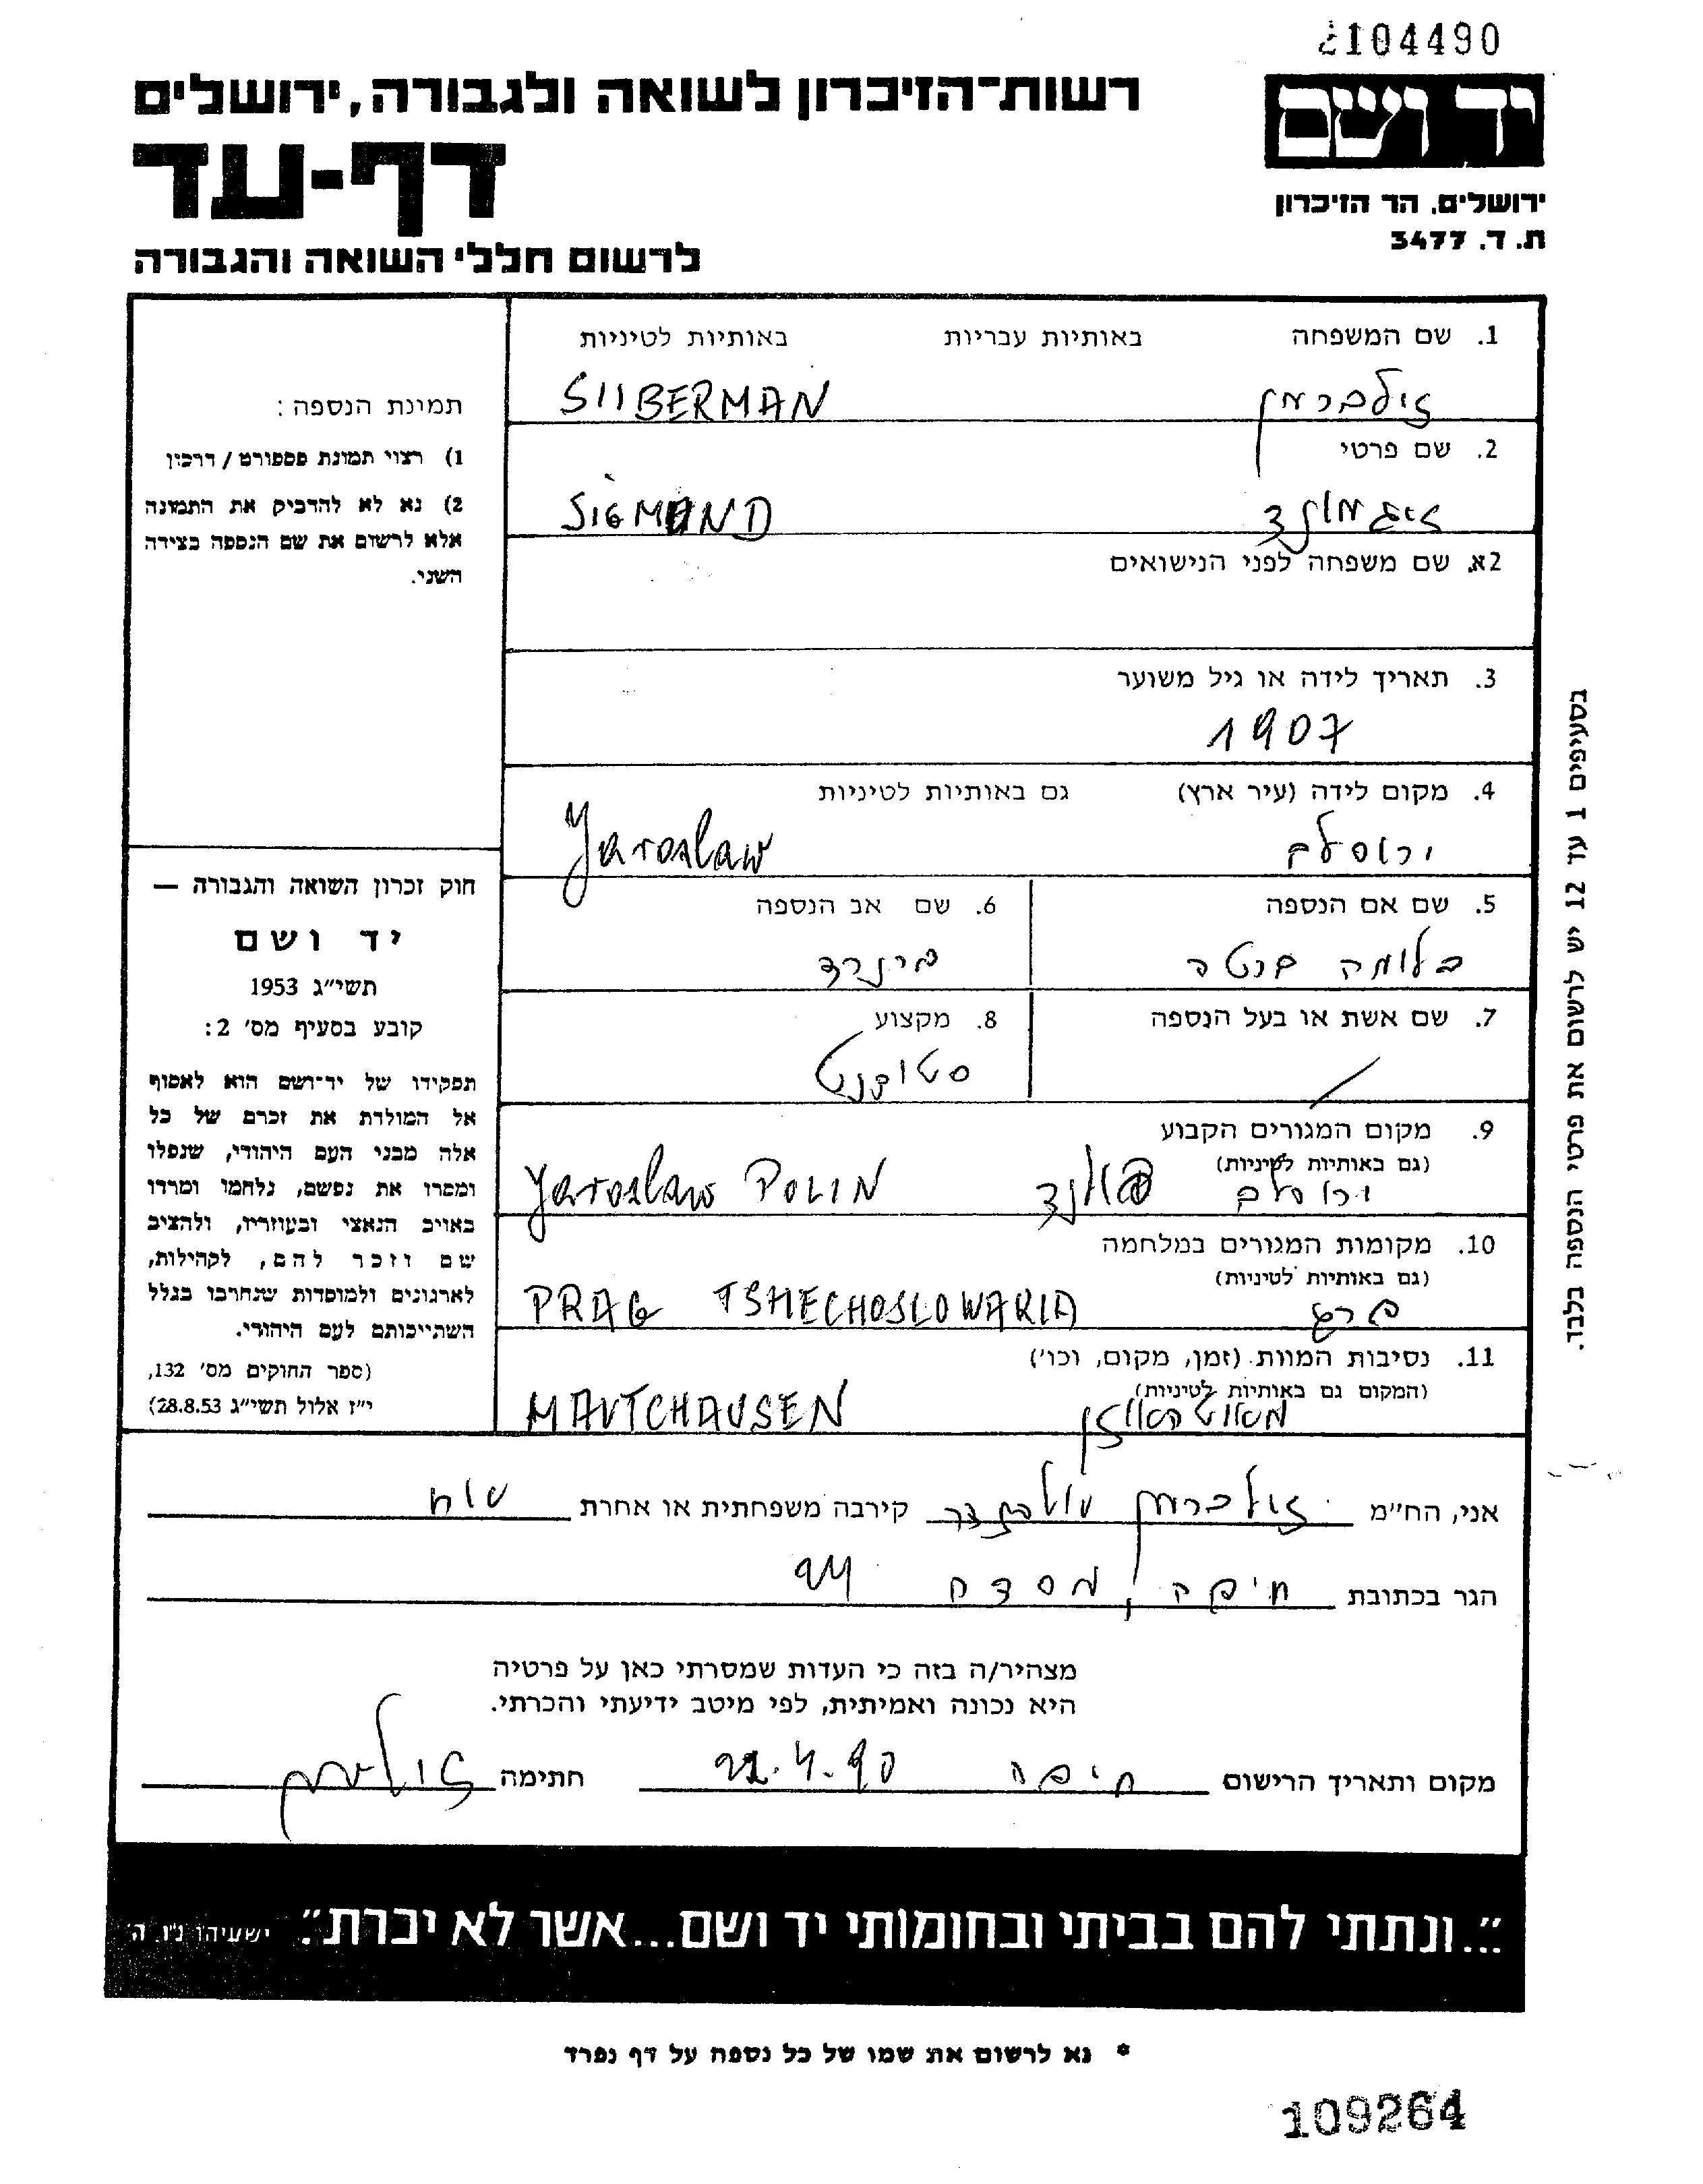 2104490
יד ושם
רשות־הזיכרון לשואה ולגבורה, ירושלים
דף-עד
ירושלים, הר הזיכרון
ת. ד. 3477
לרשום חללי השואה והגבורה
1. שם המשפחה באותיות עבריות באותיות לטיניות
זילברמן SIIBERMAN
2. שם פרטי
זיגמונד SIGMUND
2א. שם משפחה לפני הנישואים
3. תאריך לידה או גיל משוער
1907
4. מקום לידה (עיר ארץ) גם באותיות לטיניות
ירוסלב Yaroslaw
5. שם אם הנספה 6. שם אב הנספה
בלומה
7. שם אשת או בעל הנספה 8. מקצוע
/ סטודנט
9. מקום המגורים הקבוע
(גם באותיות לטיניות)
ירוסלב פולנד Yaroslaw POLIN
10. מקומות המגורים במלחמה
(גם באותיות לטיניות)
פרג PRAG TSHECHOSLOWAKIA
11. נסיבות המוות (זמן, מקום, וכו')
(המקום גם באותיות לטיניות)
מאוטהאוזן MAUTCHAUSEN
תמונת הנספה:
1) רצוי תמונת פספורט / דרכון
2) נא לא להדביק את התמונה
אלא לרשום את שם הנספה בצידה
השני.
חוק זכרון השואה והגבורה —
יד ושם
תשי״ג 1953
קובע בסעיף מס' 2:
תפקידו של יד־ושם הוא לאסוף
אל המולדת את זכרם של כל
אלה מבני העם היהודי, שנפלו
ומסרו את נפשם, נלחמו ומרדו
באויב הנאצי ובעוזריו, ולהציב
שם וזכר להם, לקהילות,
לארגונים ולמוסדות שנחרבו בגלל
השתייכותם לעם היהודי.
(ספר החוקים מס' 132,
י״ז אלול תשי״ג 28.8.53)
בסעיפים 1 עד 12 יש לרשום את פרטי הנספה בלבד.
אני, הח״מ זילברמן קירבה משפחתית או אחרת
הגר בכתובת חיפה, מסדה 24
מצהיר/ה בזה כי העדות שמסרתי כאן על פרטיה
היא נכונה ואמיתית, לפי מיטב ידיעתי והכרתי.
מקום ותאריך הרישום חיפה 22.4.90 חתימה
״...ונתתי להם בביתי ובחומותי יד ושם...אשר לא יכרת״. ישעיהו נ״ו ה׳
* נא לרשום את שמו של כל נספה על דף נפרד
109264